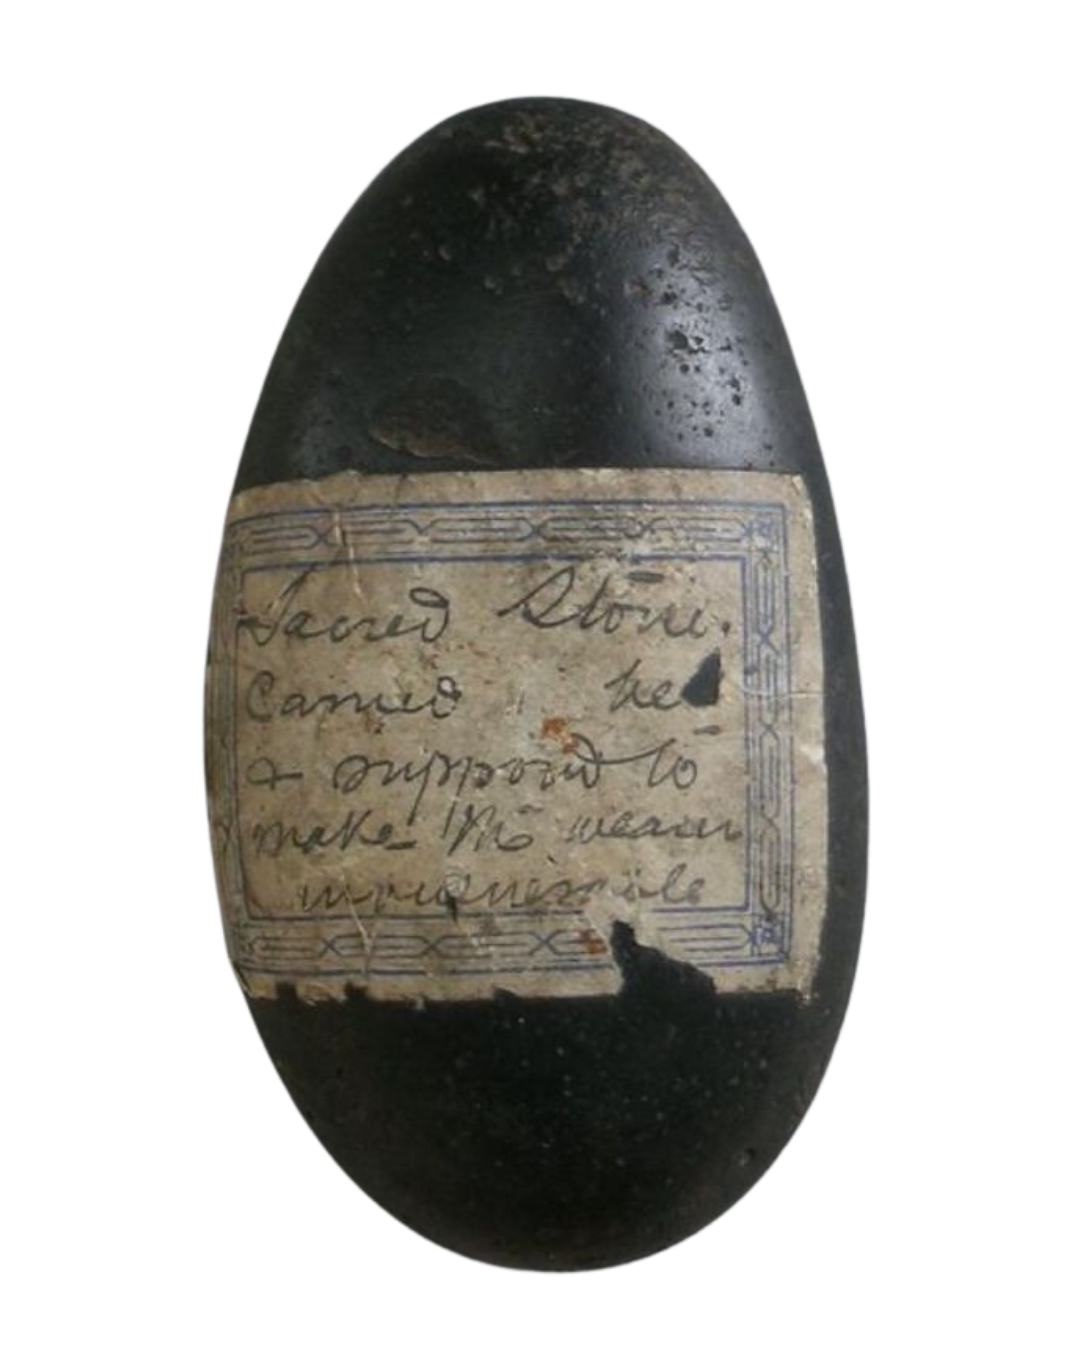 Sacred Stone.
Carried
& supposed to
make the wearer
invulnerable